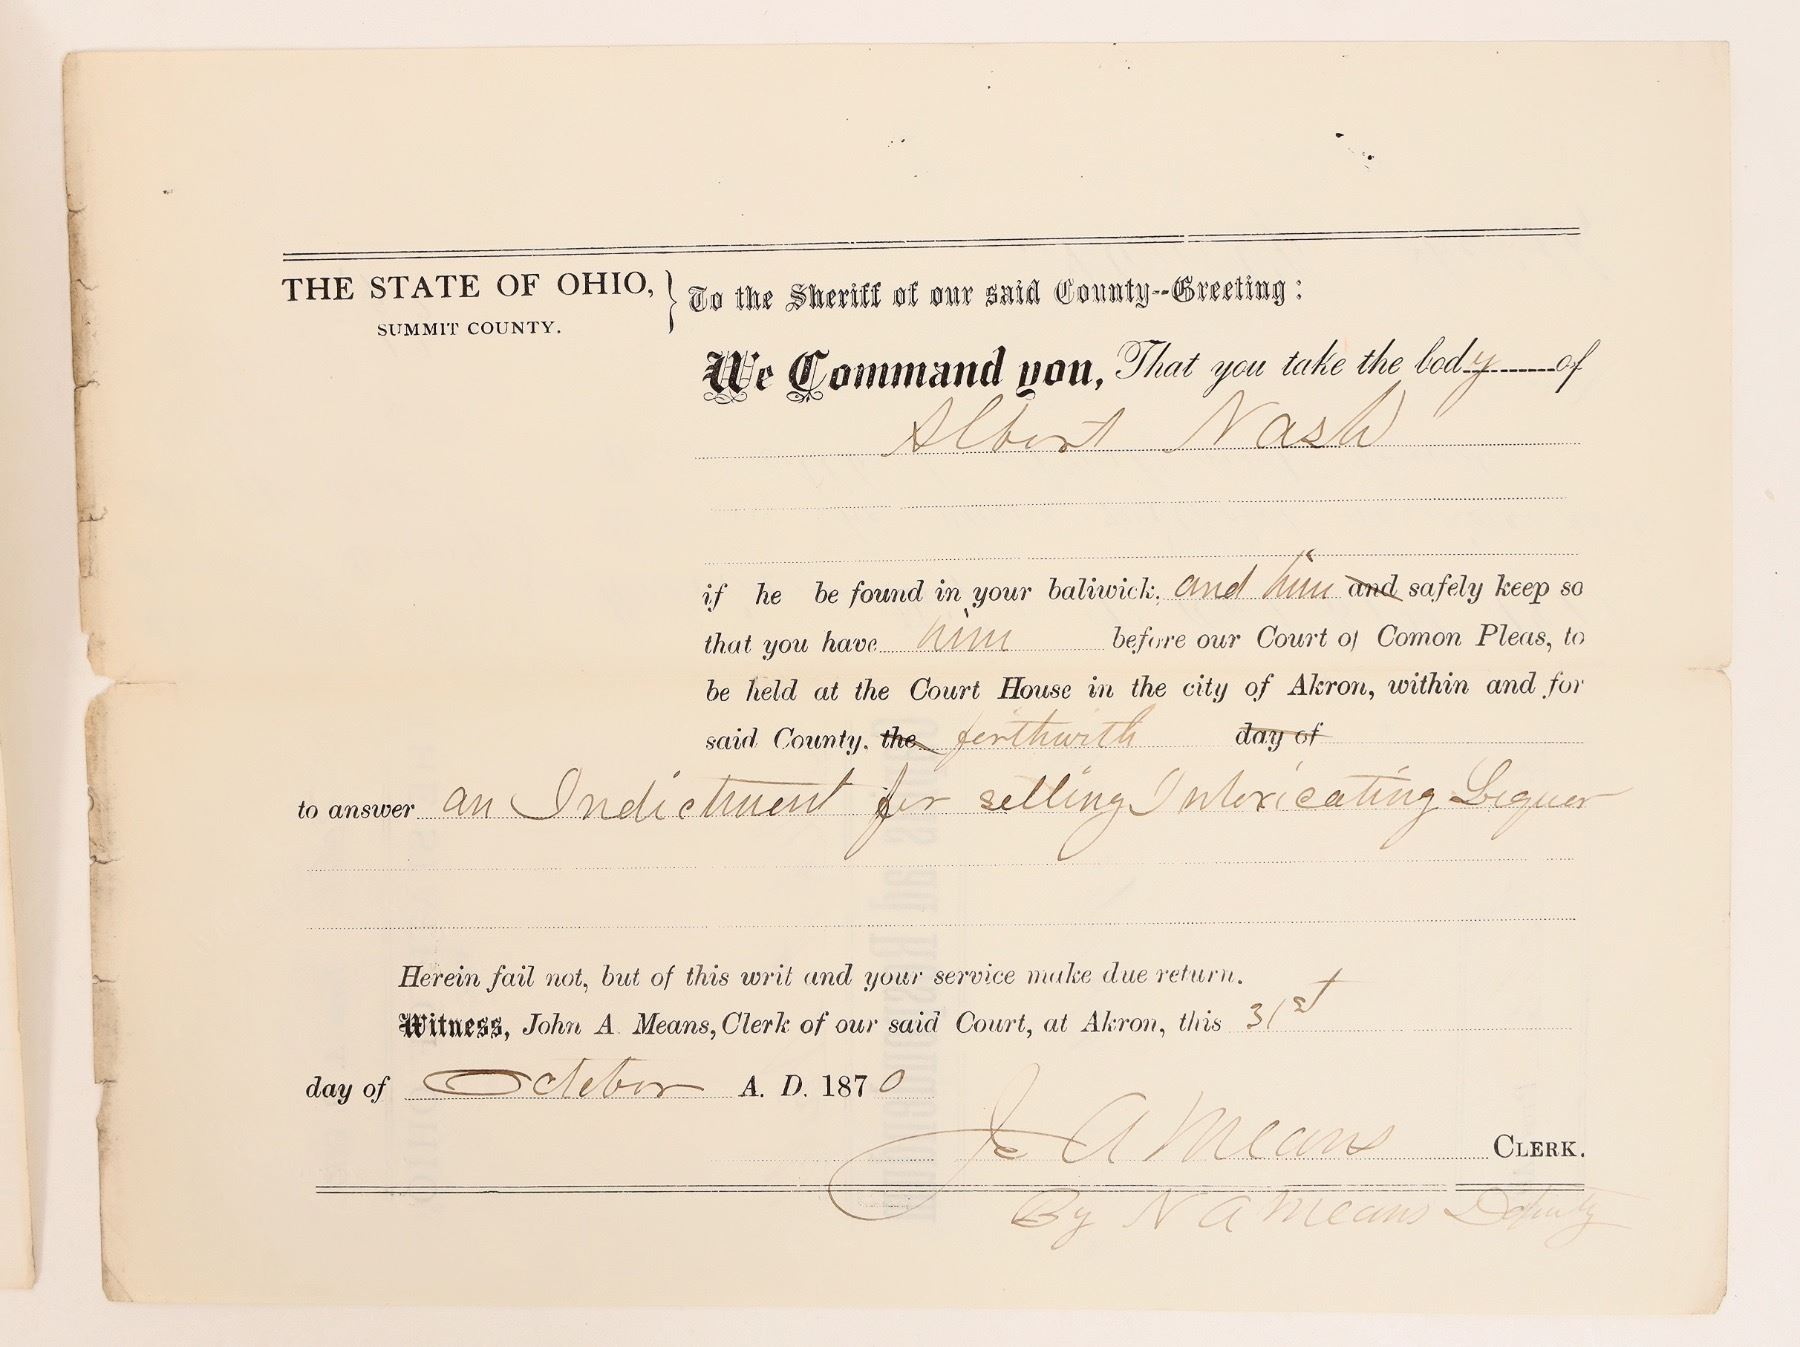 THE STATE OF OHIO, } To the Sheriff of our said County--Greeting:
SUMMIT COUNTY.
We Command you, That you take the body of
Albert Nash
if he be found in your baliwick, and him and safely keep so
that you have him before our Court of Comon Pleas, to
be held at the Court House in the city of Akron, within and for
said County, the forthwith day of
to answer an Indictment for selling Intoxicating Liquor
Herein fail not, but of this writ and your service make due return.
Witness, John A Means, Clerk of our said Court, at Akron, this 31st
day of October A. D. 1870
J A Means CLERK.
By N A Means Deputy